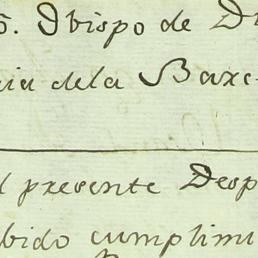 Obispo de
dela Barc
presente Desp
bido cumplimi